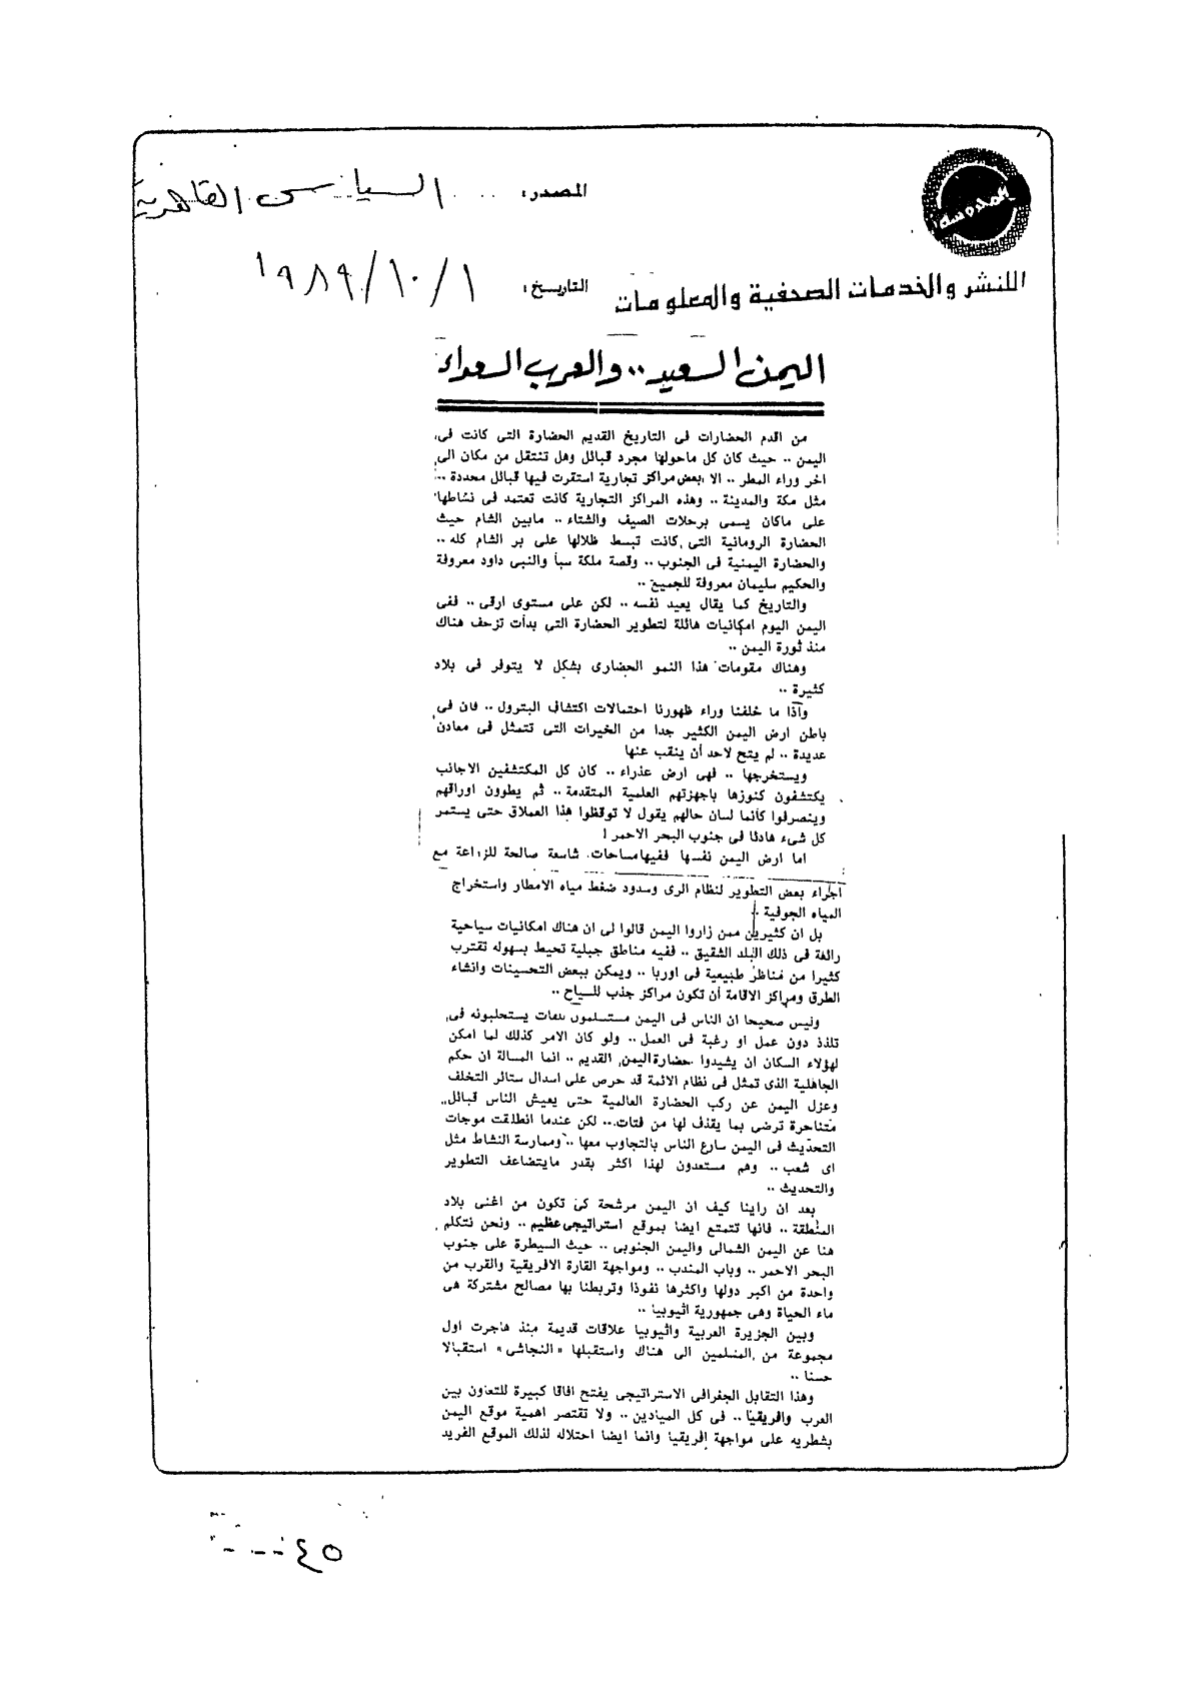 المحروسة
للنشر والخدمات الصحفية والمعلومات
المصدر: السياسى القاهرية
التاريخ: ١/١٠/١٩٨٩
اليمن السعيد.. والعرب السعداء
من اقدم الحضارات فى التاريخ القديم الحضارة التى كانت فى
اليمن .. حيث كان كل ماحولها مجرد قبائل وهل تنتقل من مكان الى
اخر وراء المطر .. الا بعض مراكز تجارية استقرت فيها قبائل محددة ..
مثل مكة والمدينة .. وهذه المراكز التجارية كانت تعتمد فى نشاطها
على ماكان يسمى برحلات الصيف والشتاء .. مابين الشام حيث
الحضارة الرومانية التى كانت تبسط ظلالها على بر الشام كله ..
والحضارة اليمنية فى الجنوب .. وقصة ملكة سبأ والنبى داود معروفة
والحكيم سليمان معروفة للجميع ..
والتاريخ كما يقال يعيد نفسه .. لكن على مستوى ارقى .. ففى
اليمن اليوم امكانيات هائلة لتطوير الحضارة التى بدأت تزحف هناك
منذ ثورة اليمن ..
وهناك مقومات هذا النمو الحضارى بشكل لا يتوفر فى بلاد
كثيرة ..
وأذا ما خلفنا وراء ظهورنا احتمالات اكتشاف البترول .. فان فى
باطن ارض اليمن الكثير جدا من الخيرات التى تتمثل فى معادن
عديدة .. لم يتح لاحد أن ينقب عنها
ويستخرجها .. فهى ارض عذراء .. كان كل المكتشفين الاجانب
يكتشفون كنوزها باجهزتهم العلمية المتقدمة .. ثم يطوون اوراقهم
وينصرفوا كأنما لسان حالهم يقول لا توقظوا هذا العملاق حتى يستمر
كل شىء هادئا فى جنوب البحر الاحمر !
اما ارض اليمن نفسها ففيها مساحات شاسعة صالحة للزراعة مع
اجراء بعض التطوير لنظام الرى وسدود ضغط مياه الامطار واستخراج
المياه الجوفية ..
بل ان كثيرين ممن زاروا اليمن قالوا لى ان هناك امكانيات سياحية
رائعة فى ذلك البلد الشقيق .. ففيه مناطق جبلية تحيط بسهوله تقترب
كثيرا من مناظر طبيعية فى اوربا .. ويمكن ببعض التحسينات وانشاء
الطرق ومراكز الاقامة أن تكون مراكز جذب للسياح ..
وليس صحيحا ان الناس فى اليمن مستسلمون لقات يستحلبونه فى
تلذذ دون عمل او رغبة فى العمل .. ولو كان الامر كذلك لما امكن
لهؤلاء السكان ان يشيدوا حضارة اليمن القديم .. انما المسالة ان حكم
الجاهلية الذى تمثل فى نظام الائمة قد حرص على اسدال ستائر التخلف
وعزل اليمن عن ركب الحضارة العالمية حتى يعيش الناس قبائل
متناحرة ترضى بما يقذف لها من فتات... لكن عندما انطلقت موجات
التحديث فى اليمن سارع الناس بالتجاوب معها .. وممارسة النشاط مثل
اى شعب .. وهم مستعدون لهذا اكثر بقدر مايتضاعف التطوير
والتحديث ..
بعد ان راينا كيف ان اليمن مرشحة كى تكون من اغنى بلاد
المنطقة .. فانها تتمتع ايضا بموقع استراتيجى عظيم .. ونحن نتكلم
هنا عن اليمن الشمالى واليمن الجنوبى .. حيث السيطرة على جنوب
البحر الاحمر .. وباب المندب .. ومواجهة القارة الافريقية والقرب من
واحدة من اكبر دولها واكثرها نفوذا وتربطنا بها مصالح مشتركة هى
ماء الحياة وهى جمهورية اثيوبيا ..
وبين الجزيرة العربية واثيوبيا علاقات قديمة منذ هاجرت اول
مجموعة من المسلمين الى هناك واستقبلها «النجاشى» استقبالا
حسنا ..
وهذا التقابل الجغرافى الاستراتيجى يفتح افاقا كبيرة للتعاون بين
العرب وافريقيا .. فى كل الميادين .. ولا تقتصر اهمية موقع اليمن
بشطريه على مواجهة افريقيا وانما ايضا احتلاله لذلك الموقع الفريد
٤٥